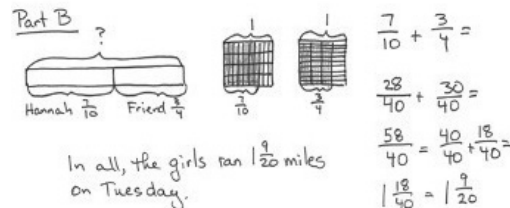 Part B
?
Hannah 7/10 Friend 3/4
1
7/10
1
3/4
7/10 + 3/4 =
28/40 + 30/40 =
58/40 = 40/40 + 18/40 =
1 18/40 = 1 9/20
In all, the girls ran 1 9/20 miles
on Tuesday.